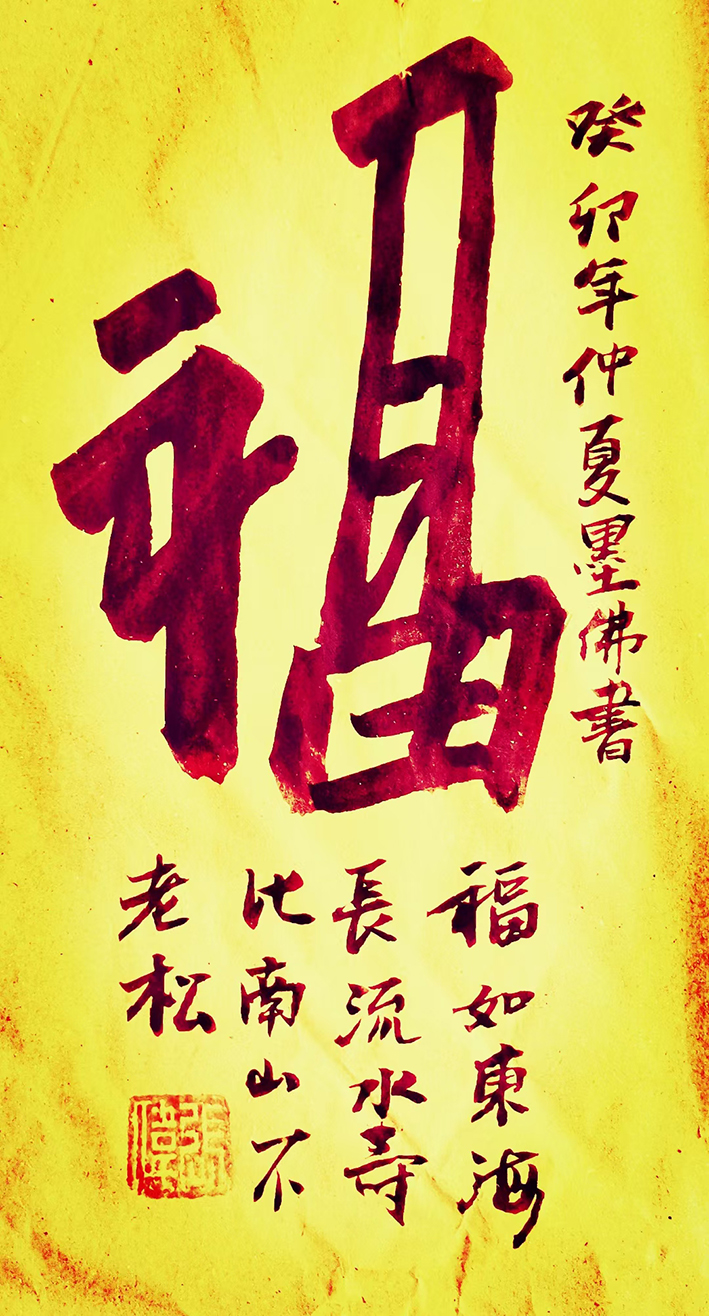 福
癸卯年仲夏墨佛書
福如東海
長流水壽
比南山不
老松